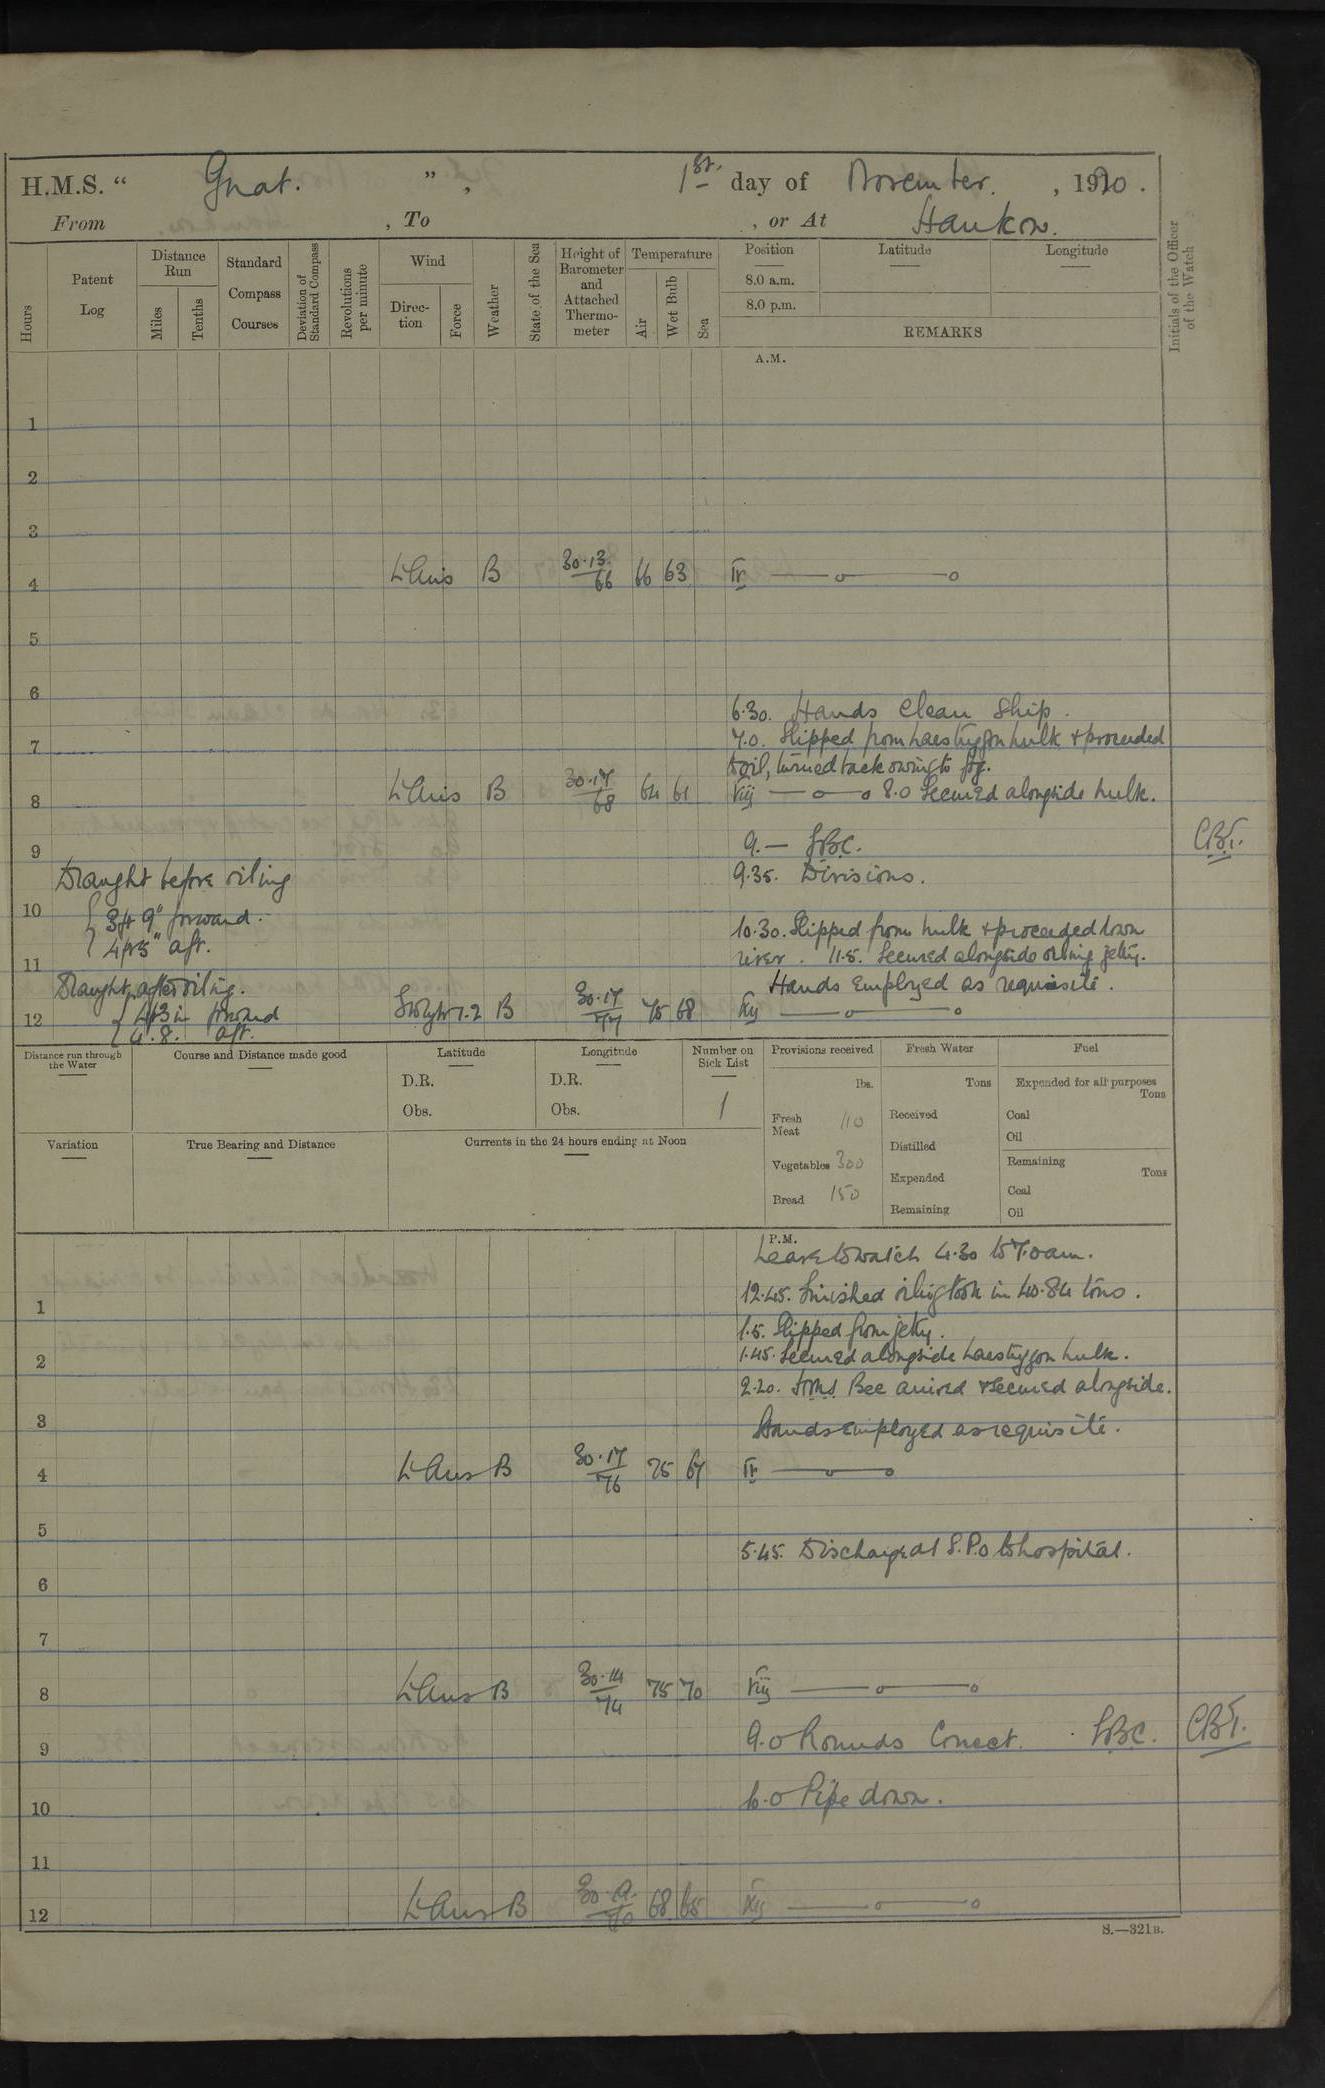 H.M.S. “ Gnat. ” , 1st. day of November. , 1920.
From , To , or At Hankow.
Hours
Patent Log
Distance Run
Miles
Tenths
Standard Compass Courses
Deviation of Standard Compass
Revolutions per minute
Wind
Direction
Force
Weather
State of the Sea
Height of Barometer and Attached Thermometer
Temperature
Air
Wet Bulb
Sea
Position
Latitude
Longitude
8.0 a.m.
8.0 p.m.
REMARKS
Initials of the Officer of the Watch
A.M.
1
2
3
4 Lt Airs B 30.13/66 66 63 IV
5
6
6.30. Hands Clean Ship.
7
7.0. Slipped from Laestrygon hulk & proceeded
to oil, turned back owing to fog.
8 Lt Airs B 30.17/68 64 61 VIII 8.0 Secured alongside hulk.
9
9.—
CBT.
Draught before oiling
9.35. Divisions.
10
{ 3ft 9" forward.
4ft 5" aft.
10.30. Slipped from hulk & proceeded down
river. 11.5. Secured alongside oiling jetty.
11
Draught after oiling.
Hands Employed as requisite.
{ 4ft 3in forward
4. 8. aft.
12 1.2 B 30.17/77 75 68 XII
Distance run through the Water
Course and Distance made good
Latitude
D.R.
Obs.
Longitude
D.R.
Obs.
Number on Sick List
1
Provisions received
lbs.
Fresh Meat 110
Vegetables 300
Bread 150
Fresh Water
Tons
Received
Distilled
Expended
Remaining
Fuel
Expended for all purposes
Tons
Coal
Oil
Remaining
Tons
Coal
Oil
Variation
True Bearing and Distance
Currents in the 24 hours ending at Noon
P.M.
Leave to watch 4.30 to 7.0am.
12.45. Finished oiling took in 40.84 tons.
1
1.5. Slipped from jetty.
1.45. Secured alongside Laestrygon hulk.
2
2.20. HMS Bee arrived & secured alongside.
3
Hands employed as requisite.
4 Lt Airs B 30.17/76 75 67 IV
5
5.45. Discharged 1 S.P.O to hospital.
6
7
8 Lt Airs B 30.14/74 75 70 VIII
9
9.0 Rounds Correct. CBT.
10.0 Pipe down.
10
11
12 Lt Airs B 68 65 XII
S.—321B.